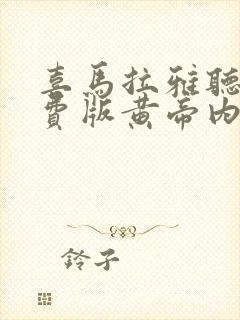 喜馬拉雅聽
費版黃帝內
鈴子